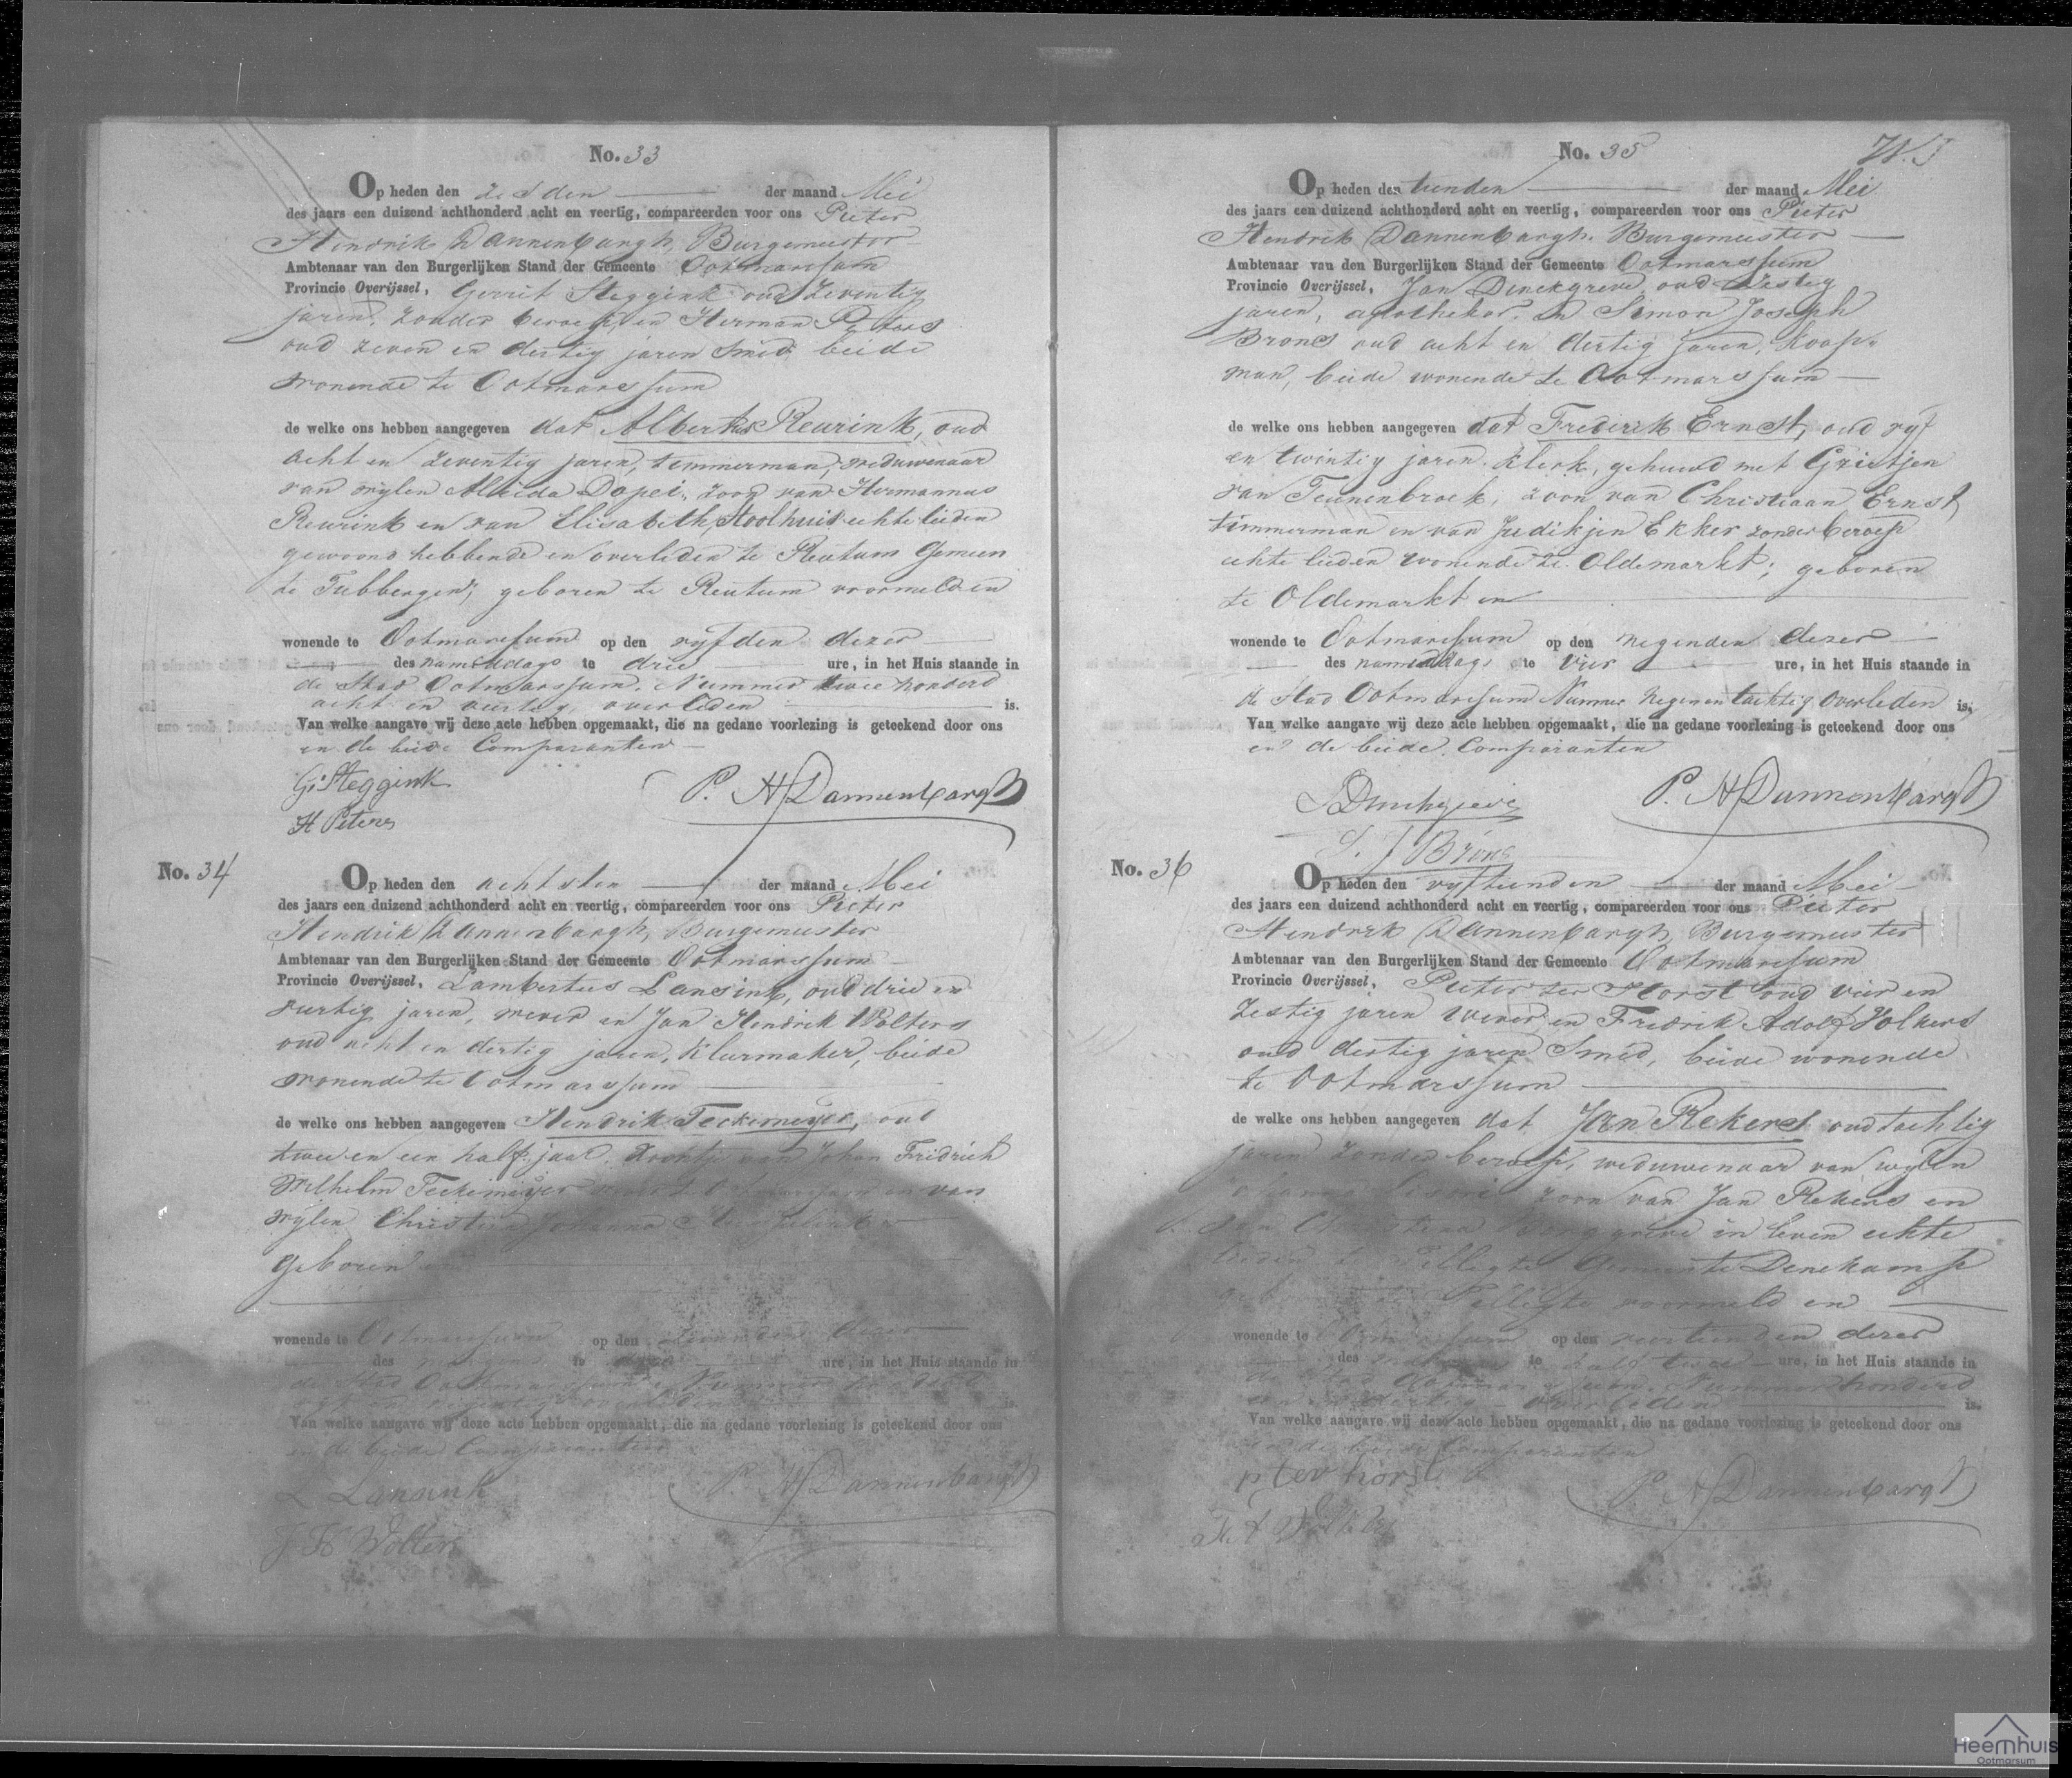 No. 33
Op heden den zesden der maand Mei
des jaars een duizend achthonderd acht en veertig, compareerden voor ons Pieter
Hendrik Dannenbargh, Burgemeester
Ambtenaar van den Burgerlijken Stand der Gemeente Ootmarssum
Provincie Overijssel, Gerrit Steggink oud zeventig
jaren, zonder beroep, en Herman Peters
oud zeven en dertig jaren Smid, beide
wonende te Ootmarssum
de welke ons hebben aangegeven dat Albertus Reurink, oud
acht en zeventig jaren, timmerman, weduwenaar
van wylen Aleida Dopei, zoon van Hermannus
Reurink en van Elisabeth Stoolhuis echte lieden
gewoond hebbende en overleden te Reutum Gemeen
te Tubbergen; geboren te Reutum voormeld en
wonende te Ootmarssum op den vyfden dezer
des namiddags te drie ure, in het Huis staande in
de Stad Ootmarssum, Nummer twee honderd
acht en veertig, overleden is.
Van welke aangave wij deze acte hebben opgemaakt, die na gedane voorlezing is geteekend door ons
en de beide Comparanten
G: Steggink
P. H Dannenbargh
H Peters
No. 34
Op heden den achtsten der maand Mei
des jaars een duizend achthonderd acht en veertig, compareerden voor ons Pieter
Hendrik Dannenbargh, Burgemeester
Ambtenaar van den Burgerlijken Stand der Gemeente Ootmarssum
Provincie Overijssel, Lambertus Lansink, oud drie en
veertig jaren, wever en Jan Hendrik Wolters
oud acht en dertig jaren, Kleermaker, beide
wonende te Ootmarssum
de welke ons hebben aangegeven Hendrik Teckemeyer, oud
twee en een half jaar, Johan Fridrich
Wilhelm Teckemeyer en van
wylen Christina Johanna
geboren en
wonende te Ootmarssum op den zevenden dezer
des te ure, in het Huis staande in
de Stad Ootmarssum, Nummer
overleden is.
Van welke aangave wij deze acte hebben opgemaakt, die na gedane voorlezing is geteekend door ons
en de beide Comparanten
L Lansink
P. H Dannenbargh
J H Wolters
No. 35
Op heden den tienden der maand Mei
des jaars een duizend achthonderd acht en veertig, compareerden voor ons Pieter
Hendrik Dannenbargh, Burgemeester
Ambtenaar van den Burgerlijken Stand der Gemeente Ootmarssum
Provincie Overijssel, Jan Denekgreve, oud zestig
jaren, apotheker, en Simon Joseph
Brons oud acht en dertig jaren, koop-
man, beide wonende te Ootmarssum
de welke ons hebben aangegeven dat Frederik Ernst, oud vyf
en twintig jaren, klerk, gehuwd met Grietjen
van Teunenbroek, zoon van Christiaan Ernst
timmerman en van Judikjen Ekker zonder beroep
echte lieden wonende te Oldemarkt; geboren
te Oldemarkt en
wonende te Ootmarssum op den negenden dezer
des namiddags te vier ure, in het Huis staande in
de Stad Ootmarssum Nummer negen en tachtig overleden is,
Van welke aangave wij deze acte hebben opgemaakt, die na gedane voorlezing is geteekend door ons
en de beide Comparanten
P. H Dannenbargh
S. J Brons
No. 36
Op heden den vyftienden der maand Mei
des jaars een duizend achthonderd acht en veertig, compareerden voor ons Pieter
Hendrik Dannenbargh, Burgemeester
Ambtenaar van den Burgerlijken Stand der Gemeente Ootmarssum
Provincie Overijssel, Pieter ter Horst oud vier en
zestig jaren wever en Fredrik Adolf Volkers
oud dertig jaren Smid, beide wonende
te Ootmarssum
de welke ons hebben aangegeven dat Jan Rekers oud tachtig
jaren zonder beroep, weduwenaar van wylen
zoon van Jan Rekers en
van Christina in leven echte
lieden te Tilligte Gemeente Denekamp
geboren te Tilligte voormeld en
wonende te Ootmarssum op den veertienden dezer
des te half twee ure, in het Huis staande in
de Stad Ootmarssum, Nummer honderd
een en dertig overleden is.
Van welke aangave wij deze acte hebben opgemaakt, die na gedane voorlezing is geteekend door ons
en de beide Comparanten
p ter horst
P. H Dannenbargh
Heemhuis
Ootmarsum